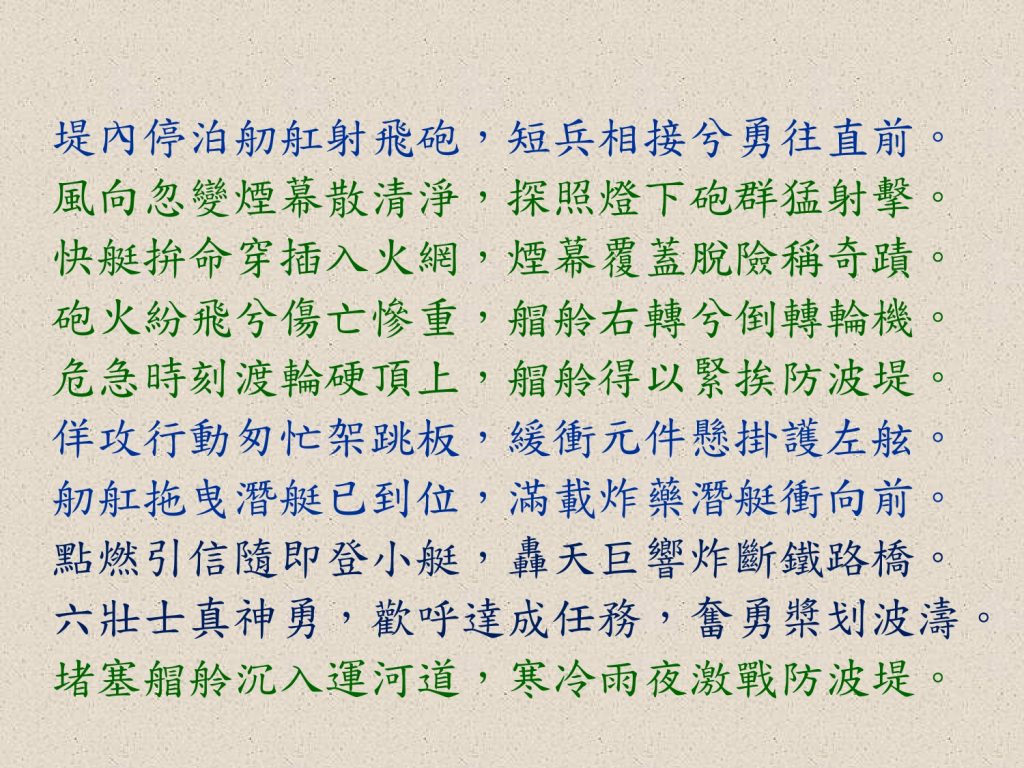 堤內停泊舠舡射飛砲，短兵相接兮勇往直前。
風向忽變煙幕散清淨，探照燈下砲群猛射擊。
快艇拚命穿插入火網，煙幕覆蓋脫險稱奇蹟。
砲火紛飛兮傷亡慘重，艒舲右轉兮倒轉輪機。
危急時刻渡輪硬頂上，艒舲得以緊挨防波堤。
佯攻行動匆忙架跳板，緩衝元件懸掛護左舷。
舠舡拖曳潛艇已到位，滿載炸藥潛艇衝向前。
點燃引信隨即登小艇，轟天巨響炸斷鐵路橋。
六壯士真神勇，歡呼達成任務，奮勇槳划波濤。
堵塞艒舲沉入運河道，寒冷雨夜激戰防波堤。